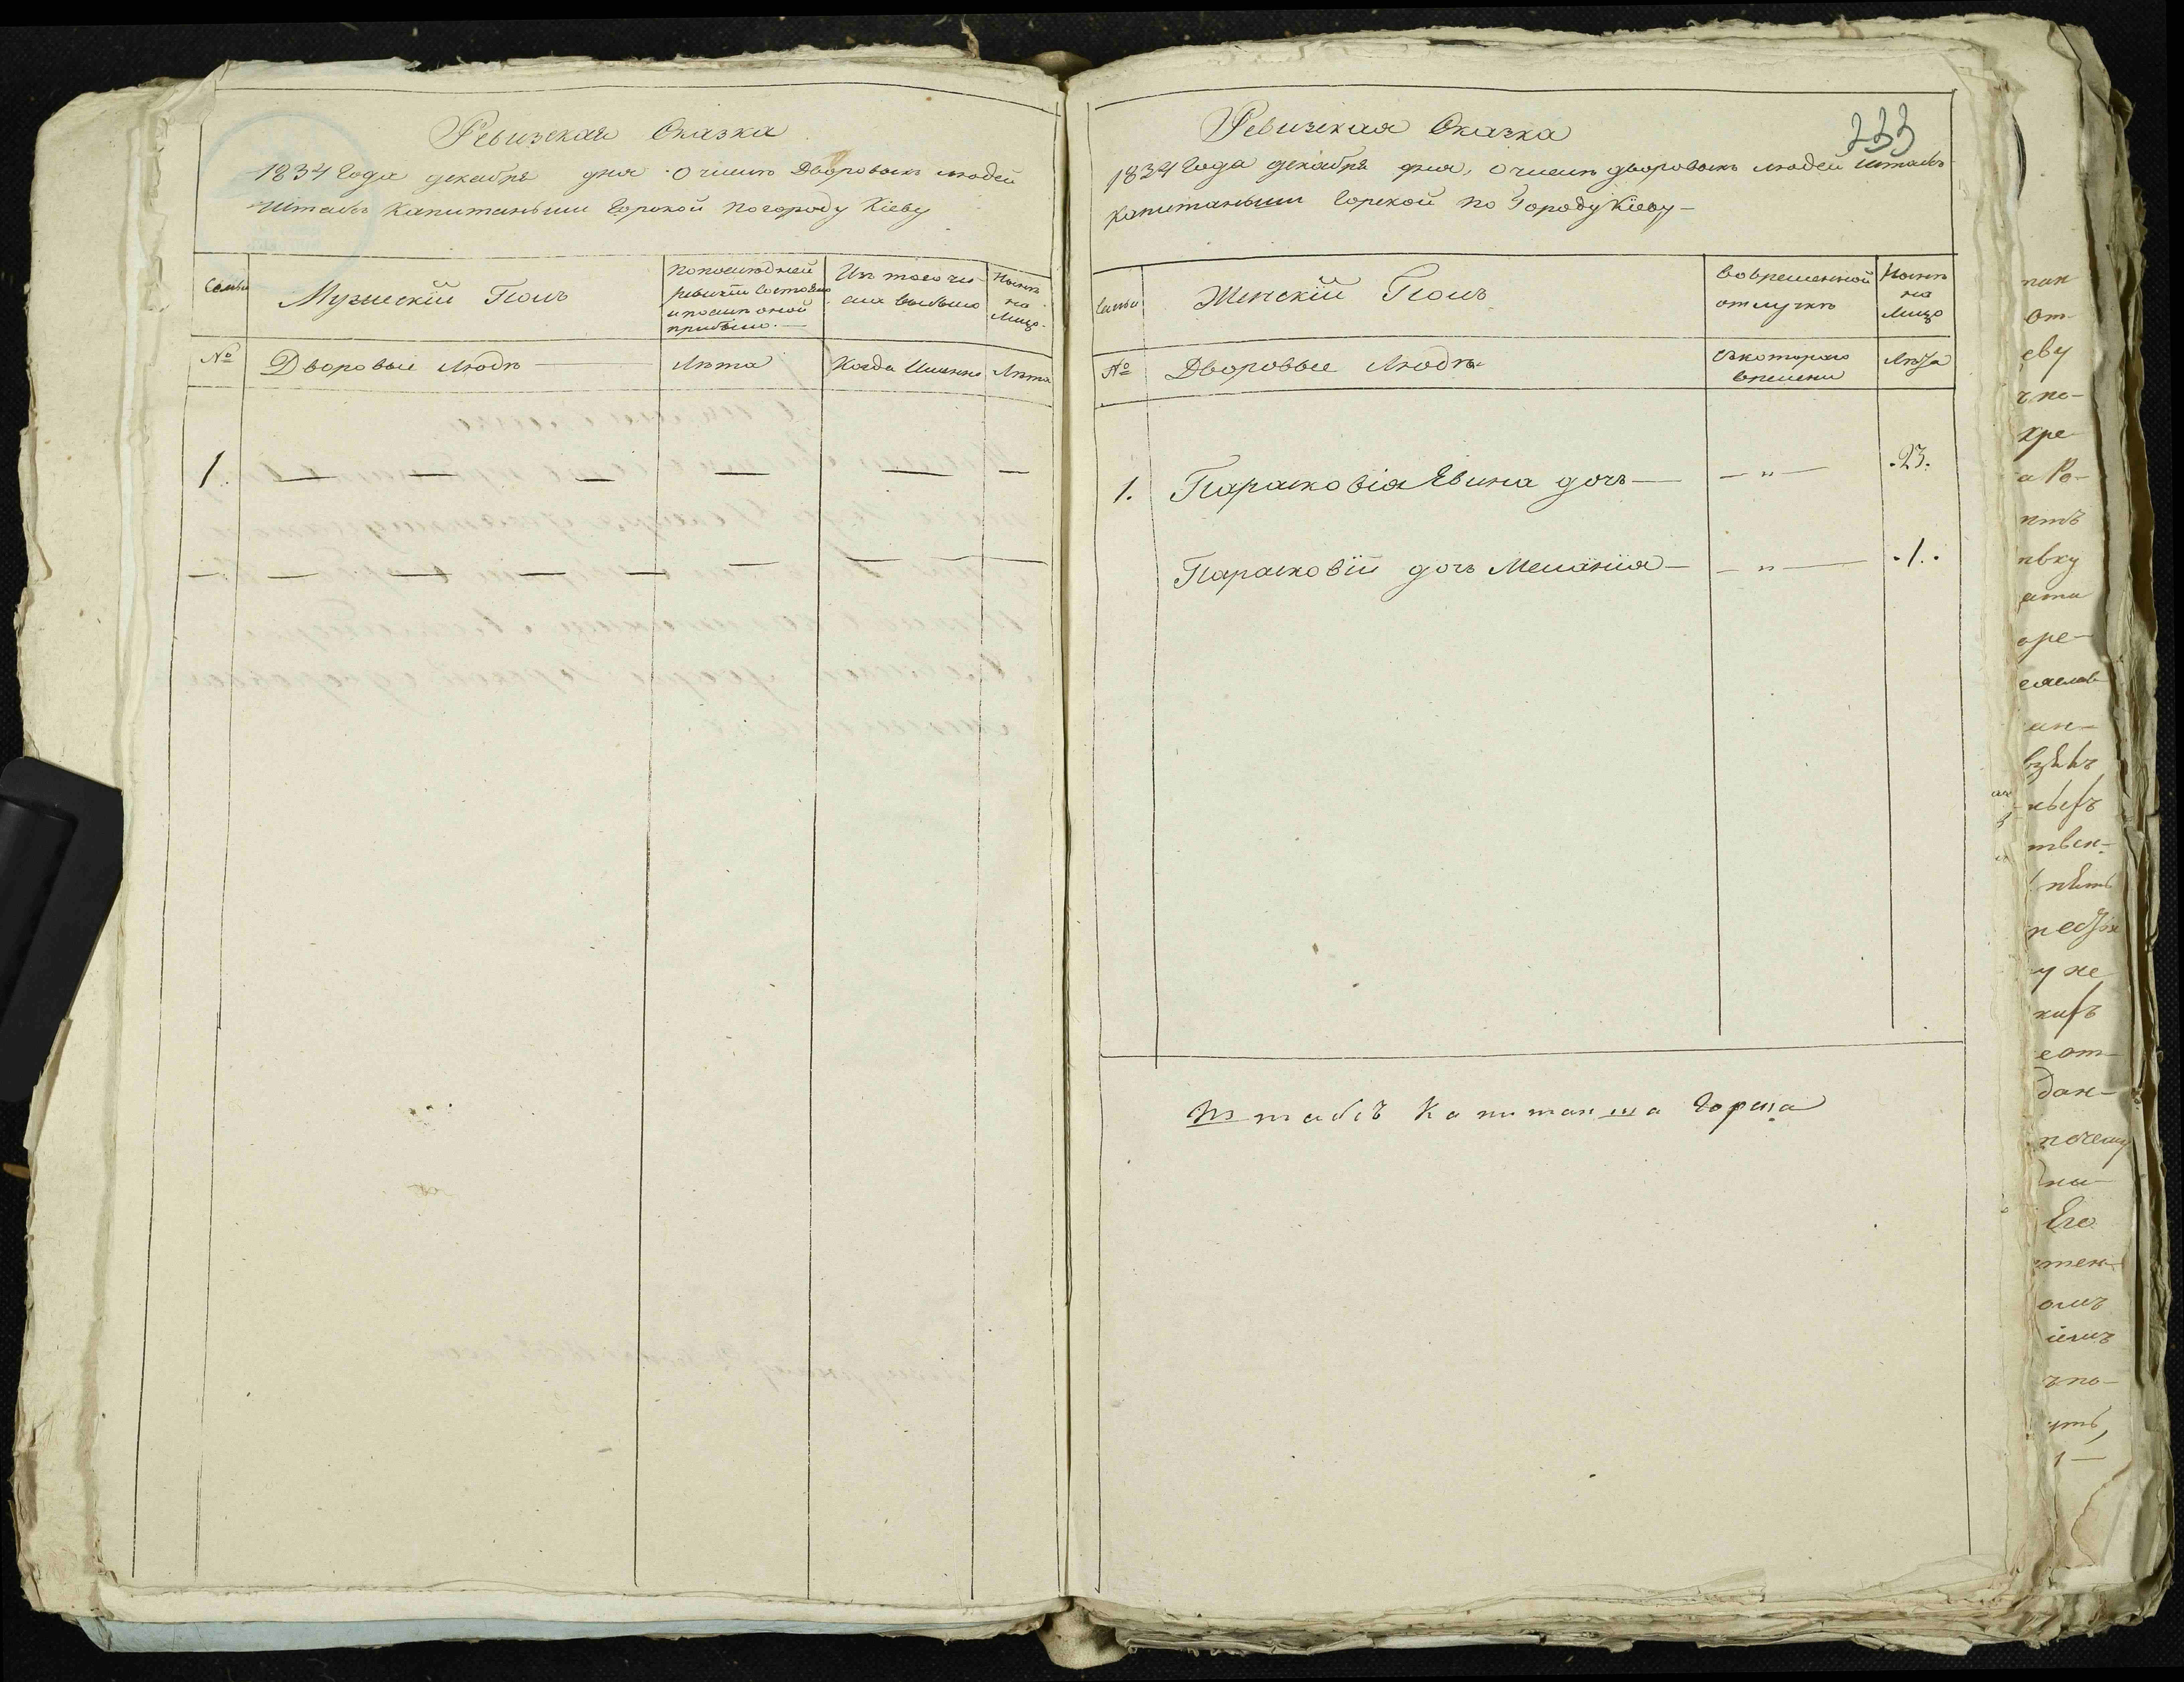 Ревизская Сказка
1834 Года декабря дня О числѣ Дворовыхъ людей
Штабъ Капитанъши Горской по городу Кіеву
Семьи
Мужескій Полъ
По последней ревизіи состояло и послѣ оной прибыло.
Изъ того числа выбыло
Нынѣ на Лицо.
№
Дворовые людѣ
Лѣта
Когда Именно
Лѣта
1.
Ревизская Сказка
233
1834 Года декабря дня, О числѣ дворовыхъ людей Штабъ
капитанъши Горской по Городу Кіеву —
Семьи
Женскій Полъ
Во временной отлучкѣ
Нынѣ на Лицо
№
Дворовые людѣ
Съ котораго времени
Лѣта
1. Парасковія Евина дочь — — " — .23.
Парасковіи дочь Меланія — — " — .1.
Штабсъ Капитанша Горска
пан
От-
еву
ъ по-
кре
а Ро-
оре-
ан-
у не
еот-
дан-
почему
Его
ъ по-